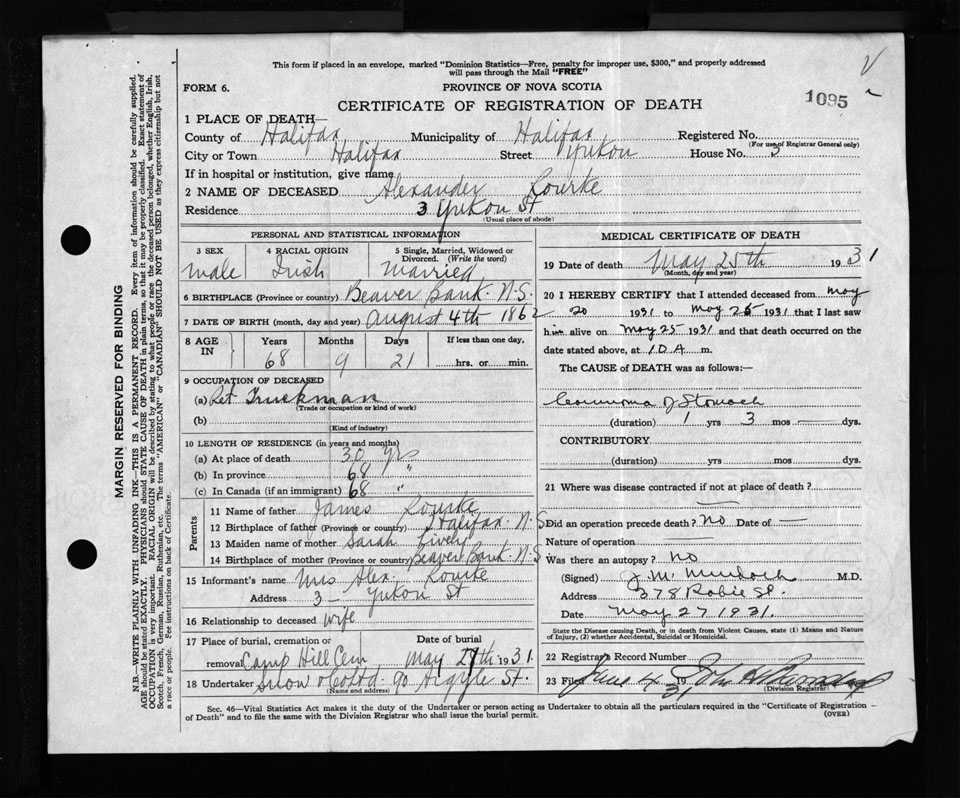 This form if placed in an envelope, marked "Dominion Statistics—Free, penalty for improper use, $300," and properly addressed
will pass through the Mail "FREE"
FORM 6.
PROVINCE OF NOVA SCOTIA
1095
CERTIFICATE OF REGISTRATION OF DEATH
1 PLACE OF DEATH—
County of Halifax Municipality of Halifax Registered No.
(For use of Registrar General only)
City or Town Halifax Street Yukon House No. 3
If in hospital or institution, give name
2 NAME OF DECEASED Alexander Rourke
Residence 3 Yukon St
(Usual place of abode)
PERSONAL AND STATISTICAL INFORMATION
3 SEX 4 RACIAL ORIGIN 5 Single, Married, Widowed or Divorced. (Write the word)
Male Irish Married
6 BIRTHPLACE (Province or country) Beaver Bank. N.S.
7 DATE OF BIRTH (month, day and year) August 4th 1862
8 AGE IN Years Months Days If less than one day,
68 9 21 hrs. or min.
9 OCCUPATION OF DECEASED
(a) Ret Truckman
(Trade or occupation or kind of work)
(b)
(Kind of industry)
10 LENGTH OF RESIDENCE (in years and months)
(a) At place of death 30 yrs
(b) In province 68 "
(c) In Canada (if an immigrant) 68 "
Parents
11 Name of father James Rourke
12 Birthplace of father (Province or country) Halifax N.S
13 Maiden name of mother Sarah Lively
14 Birthplace of mother (Province or country) Beaver Bank. N.S
15 Informant's name Mrs Alex. Rourke
Address 3 - Yukon St
16 Relationship to deceased wife
17 Place of burial, cremation or removal Camp Hill Cem Date of burial May 27th 1931.
18 Undertaker Snow & Co Ltd. 90 Argyle St.
(Name and address)
MEDICAL CERTIFICATE OF DEATH
19 Date of death May 25th 1931
(Month, day and year)
20 I HEREBY CERTIFY that I attended deceased from May
20 1931 to May 25 1931 that I last saw
him alive on May 25 1931 and that death occurred on
date stated above, at 10 A m.
The CAUSE of DEATH was as follows:—
Carcinoma of Stomach
(duration) 1 yrs 3 mos — dys.
CONTRIBUTORY
(duration) yrs mos dys.
21 Where was disease contracted if not at place of death?
—
Did an operation precede death? No Date of —
Nature of operation —
Was there an autopsy? No
(Signed) J. M. Murdoch M.D.
Address 378 Robie St.
Date May 27 1931.
State the Disease causing Death, or in death from Violent Causes, state (1) Means and Nature
of Injury, (2) whether Accidental, Suicidal or Homicidal.
22 Registrar's Record Number
23 Filed June 4 1931 John
(Division Registrar)
Sec. 46—Vital Statistics Act makes it the duty of the Undertaker or person acting as Undertaker to obtain all the particulars required in the "Certificate of Registration
of Death" and to file the same with the Division Registrar who shall issue the burial permit.
(OVER)
MARGIN RESERVED FOR BINDING
N.B.—WRITE PLAINLY WITH UNFADING INK—THIS IS A PERMANENT RECORD. Every item of information should be carefully supplied.
AGE should be stated EXACTLY. PHYSICIANS should STATE CAUSE OF DEATH in plain terms, so that it may be properly classified. Exact statement of
OCCUPATION is very important. RACIAL ORIGIN will be described by stating to what people or race the deceased person belonged, whether English, Irish,
Scotch, French, German, Russian, Ruthenian, etc. The terms "AMERICAN" or "CANADIAN" SHOULD NOT BE USED as they express citizenship but not
a race or people. See instructions on back of Certificate.